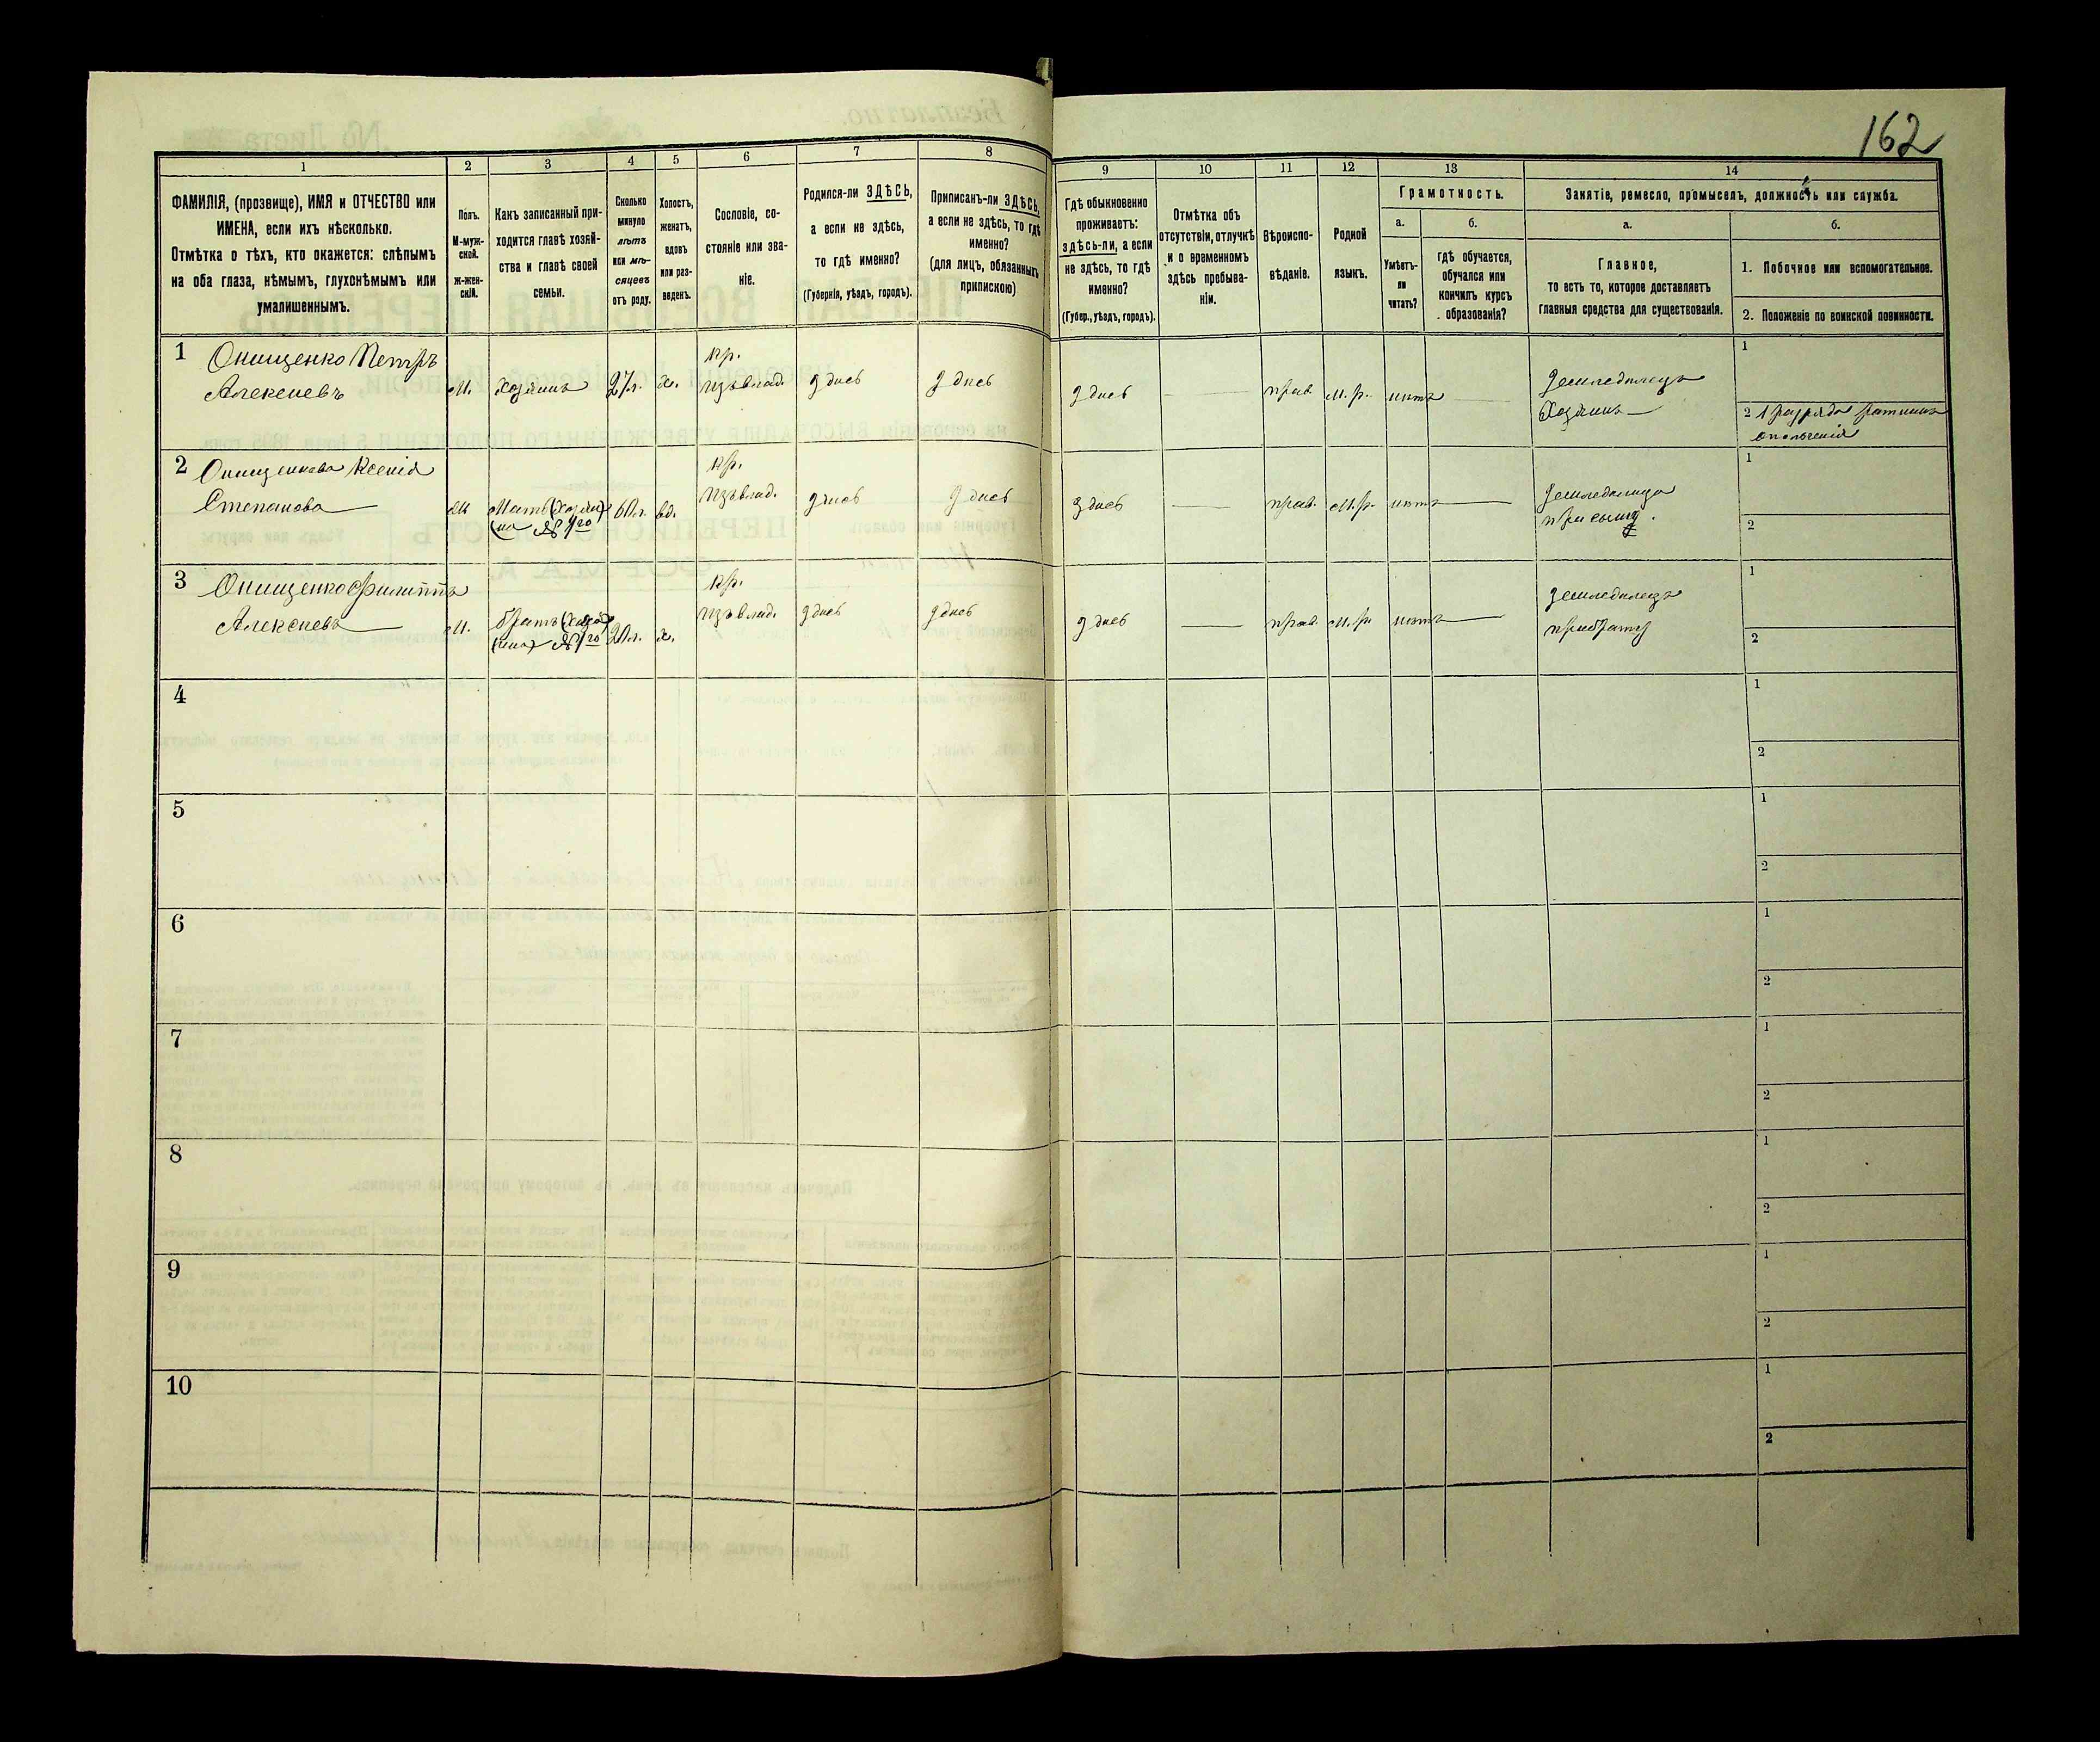 162
1
2
3
4
5
6
7
8
9
10
11
12
13
14
ФАМИЛІЯ, (прозвище), ИМЯ и ОТЧЕСТВО или
ИМЕНА, если ихъ нѣсколько.
Отмѣтка о тѣхъ, кто окажется: слѣпымъ
на оба глаза, нѣмымъ, глухонѣмымъ или
умалишеннымъ.
Полъ.
М-муж-
ской.
ж-жен-
скій.
Какъ записанный при-
ходится главѣ хозяй-
ства и главѣ своей
семьи.
Сколько
минуло
лѣтъ
или мѣ-
сяцевъ
отъ роду.
Холостъ,
женатъ,
вдовъ
или раз-
веденъ.
Сословіе, со-
стояніе или зва-
ніе.
Родился-ли ЗДѢСЬ,
а если не здѣсь,
то гдѣ именно?
(Губернія, уѣздъ, городъ).
Приписанъ-ли ЗДѢСЬ,
а если не здѣсь, то гдѣ
именно?
(для лицъ, обязанныхъ
припискою)
Гдѣ обыкновенно
проживаетъ:
здѣсь-ли, а если
не здѣсь, то гдѣ
именно?
(Губер., уѣздъ, городъ).
Отмѣтка объ
отсутствіи, отлучкѣ
и о временномъ
здѣсь пребыва-
ніи.
Вѣроиспо-
вѣданіе.
Родной
языкъ.
Грамотность.
а.
Умѣетъ-
ли
читать?
б.
гдѣ обучается,
обучался или
кончилъ курсъ
образованія?
Занятіе, ремесло, промыселъ, должность или служба.
а.
Главное,
то есть то, которое доставляетъ
главныя средства для существованія.
б.
1. Побочное или вспомогательное.
2. Положеніе по воинской повинности.
1
Онищенко Петръ
Алексѣевъ
М.
Хозяинъ
27л.
х.
кр.
изъ влад.
здѣсь
здѣсь
здѣсь
прав.
м. р.
нѣтъ
земледѣлецъ
Хозяинъ
1
2 1 разряда ратникъ
ополченія
2
Онищенкова Ксенія
Степанова
Ж
Мать (хозяи)
(на №1го
60л.
вд.
кр.
изъ влад.
здѣсь
здѣсь
здѣсь
прав.
м. р.
нѣтъ
при сынѣ.
1
2
3
Онищенко Филиппъ
Алексѣевъ
М.
братъ (хозя)
(ина) №1го
20л.
х.
кр.
изъ влад.
здѣсь
здѣсь
здѣсь
прав.
м. р.
нѣтъ
земледѣлецъ
при братѣ
1
2
4
1
2
5
1
2
6
1
2
7
1
2
8
1
2
9
1
2
10
1
2